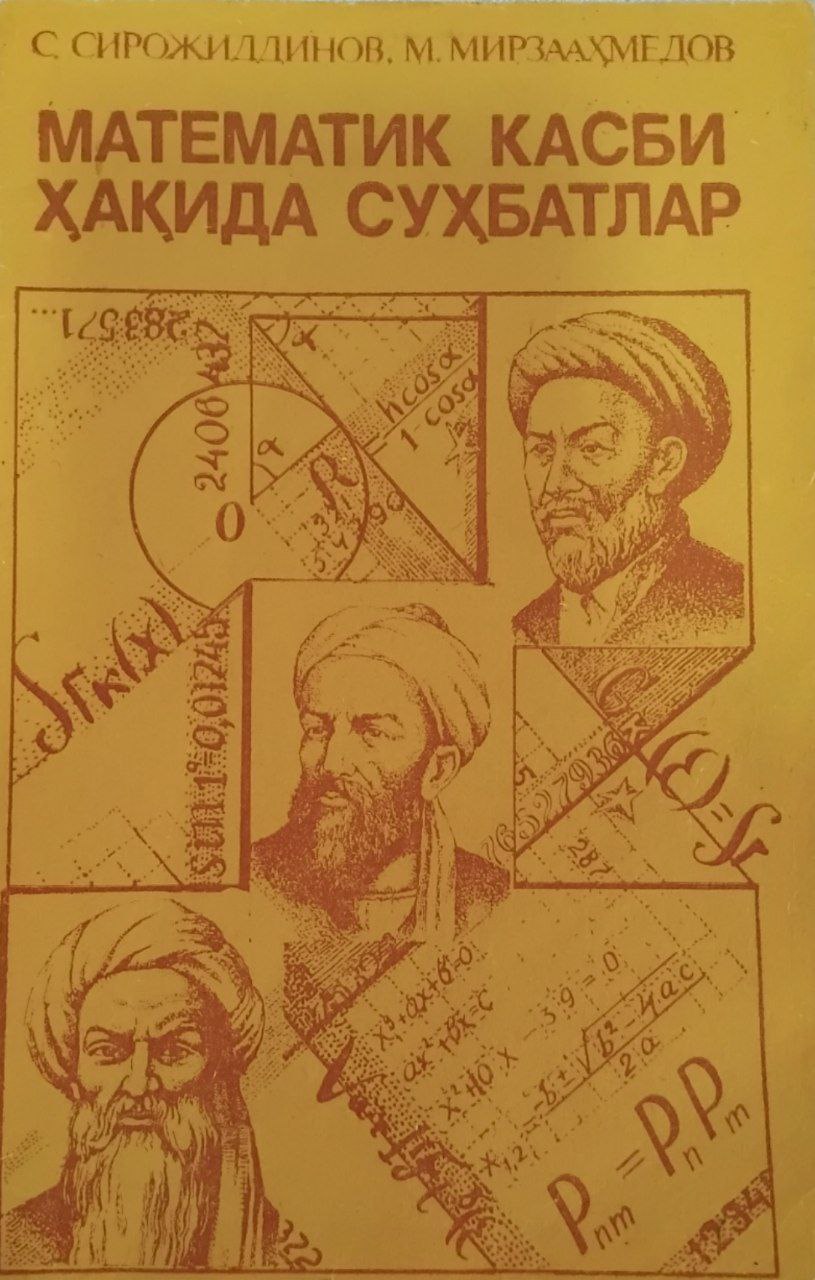 С. СИРОЖИДДИНОВ, М. МИРЗААҲМЕДОВ
МАТЕМАТИК КАСБИ
ҲАҚИДА СУҲБАТЛАР
283571...
2406 432
α
hcosα
1-cosα
α
R
O
5 4 3 90
∫Гк(х)
sin 1°=0,01745
76527936
287
x³+ax+b=0
ax²+bx=c
x²+10x-39=0
x₁,₂ = -b±√b²-4ac
2a
Pnm=PnPm
1234
322